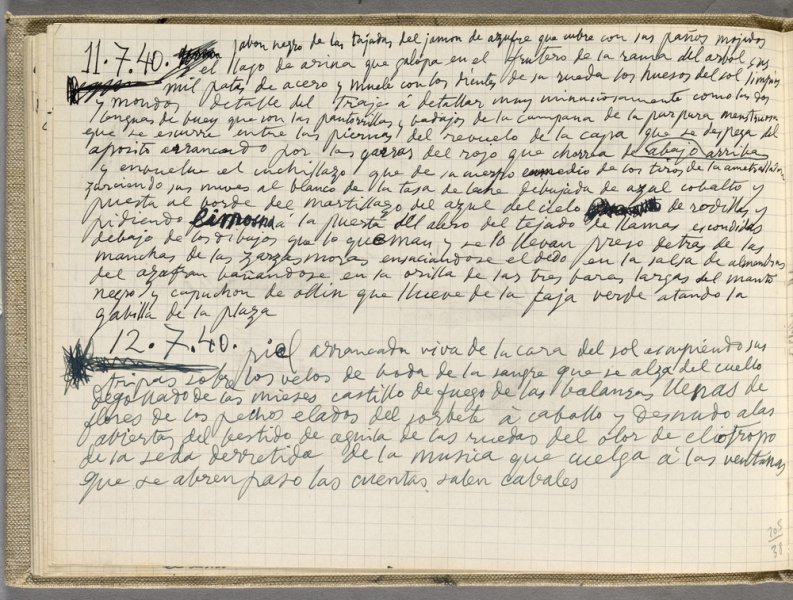 11.7.40. jabon negro de las tajadas del jamon de azufre que cubre con sus paños mojados
el lago de arina que galopa en el frutero de la rama del arbol y sus
mil patas de acero y muele con los dientes de su rueda los huesos del sol limpios
y mondos detalle del traje á detallar muy minuciosamente como las dos
lenguas de buey que son las pantorrillas y badajos de la campana de la purpura menstruosa
que se escurre entre las piernas del revuelo de la capa que se despega del
aposito arrancado por las garras del rojo que chorrea de abajo arriba
y envuelve el cuchillazo que da su cuerpo enmedio de los tiros de la ametralladora
zurciendo sus nuves al blanco de la tasa de leche dibujada de azul cobalto y
puesta al borde del martillazo del azul del cielo de rodillas y
pidiendo limosna á la puerta del alero del tejado de llamas escondidas
debajo de los dibujos que lo queman y se lo llevan preso detras de las
manchas de las zarzasmoras ensuciandose el dedo en la salsa de almendras
del azafran bañandose en la orilla de las tres varas largas del manto
negro y capuchon de ollin que llueve de la faja verde atando la
gabilla de la plaza
12.7.40. piel arrancada viva de la cara del sol escupiendo sus
tripas sobre los velos de boda de la sangre que se alza del cuello
degollado de las mieses castillo de fuego de las balanzas llenas de
flores de los pechos elados del sorbete á caballo y desnudo alas
abiertas del bestido de aguila de las ruedas del olor de eliotropo
de la seda derretida de la musica que cuelga á las ventanas
que se abren paso las cuentas salen cabales
205
38